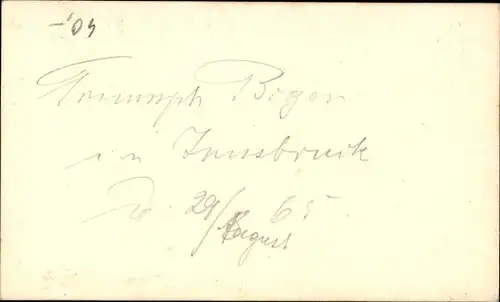 -'04
Triumph Bogen
in Innsbruck
d. 29/ 65
August